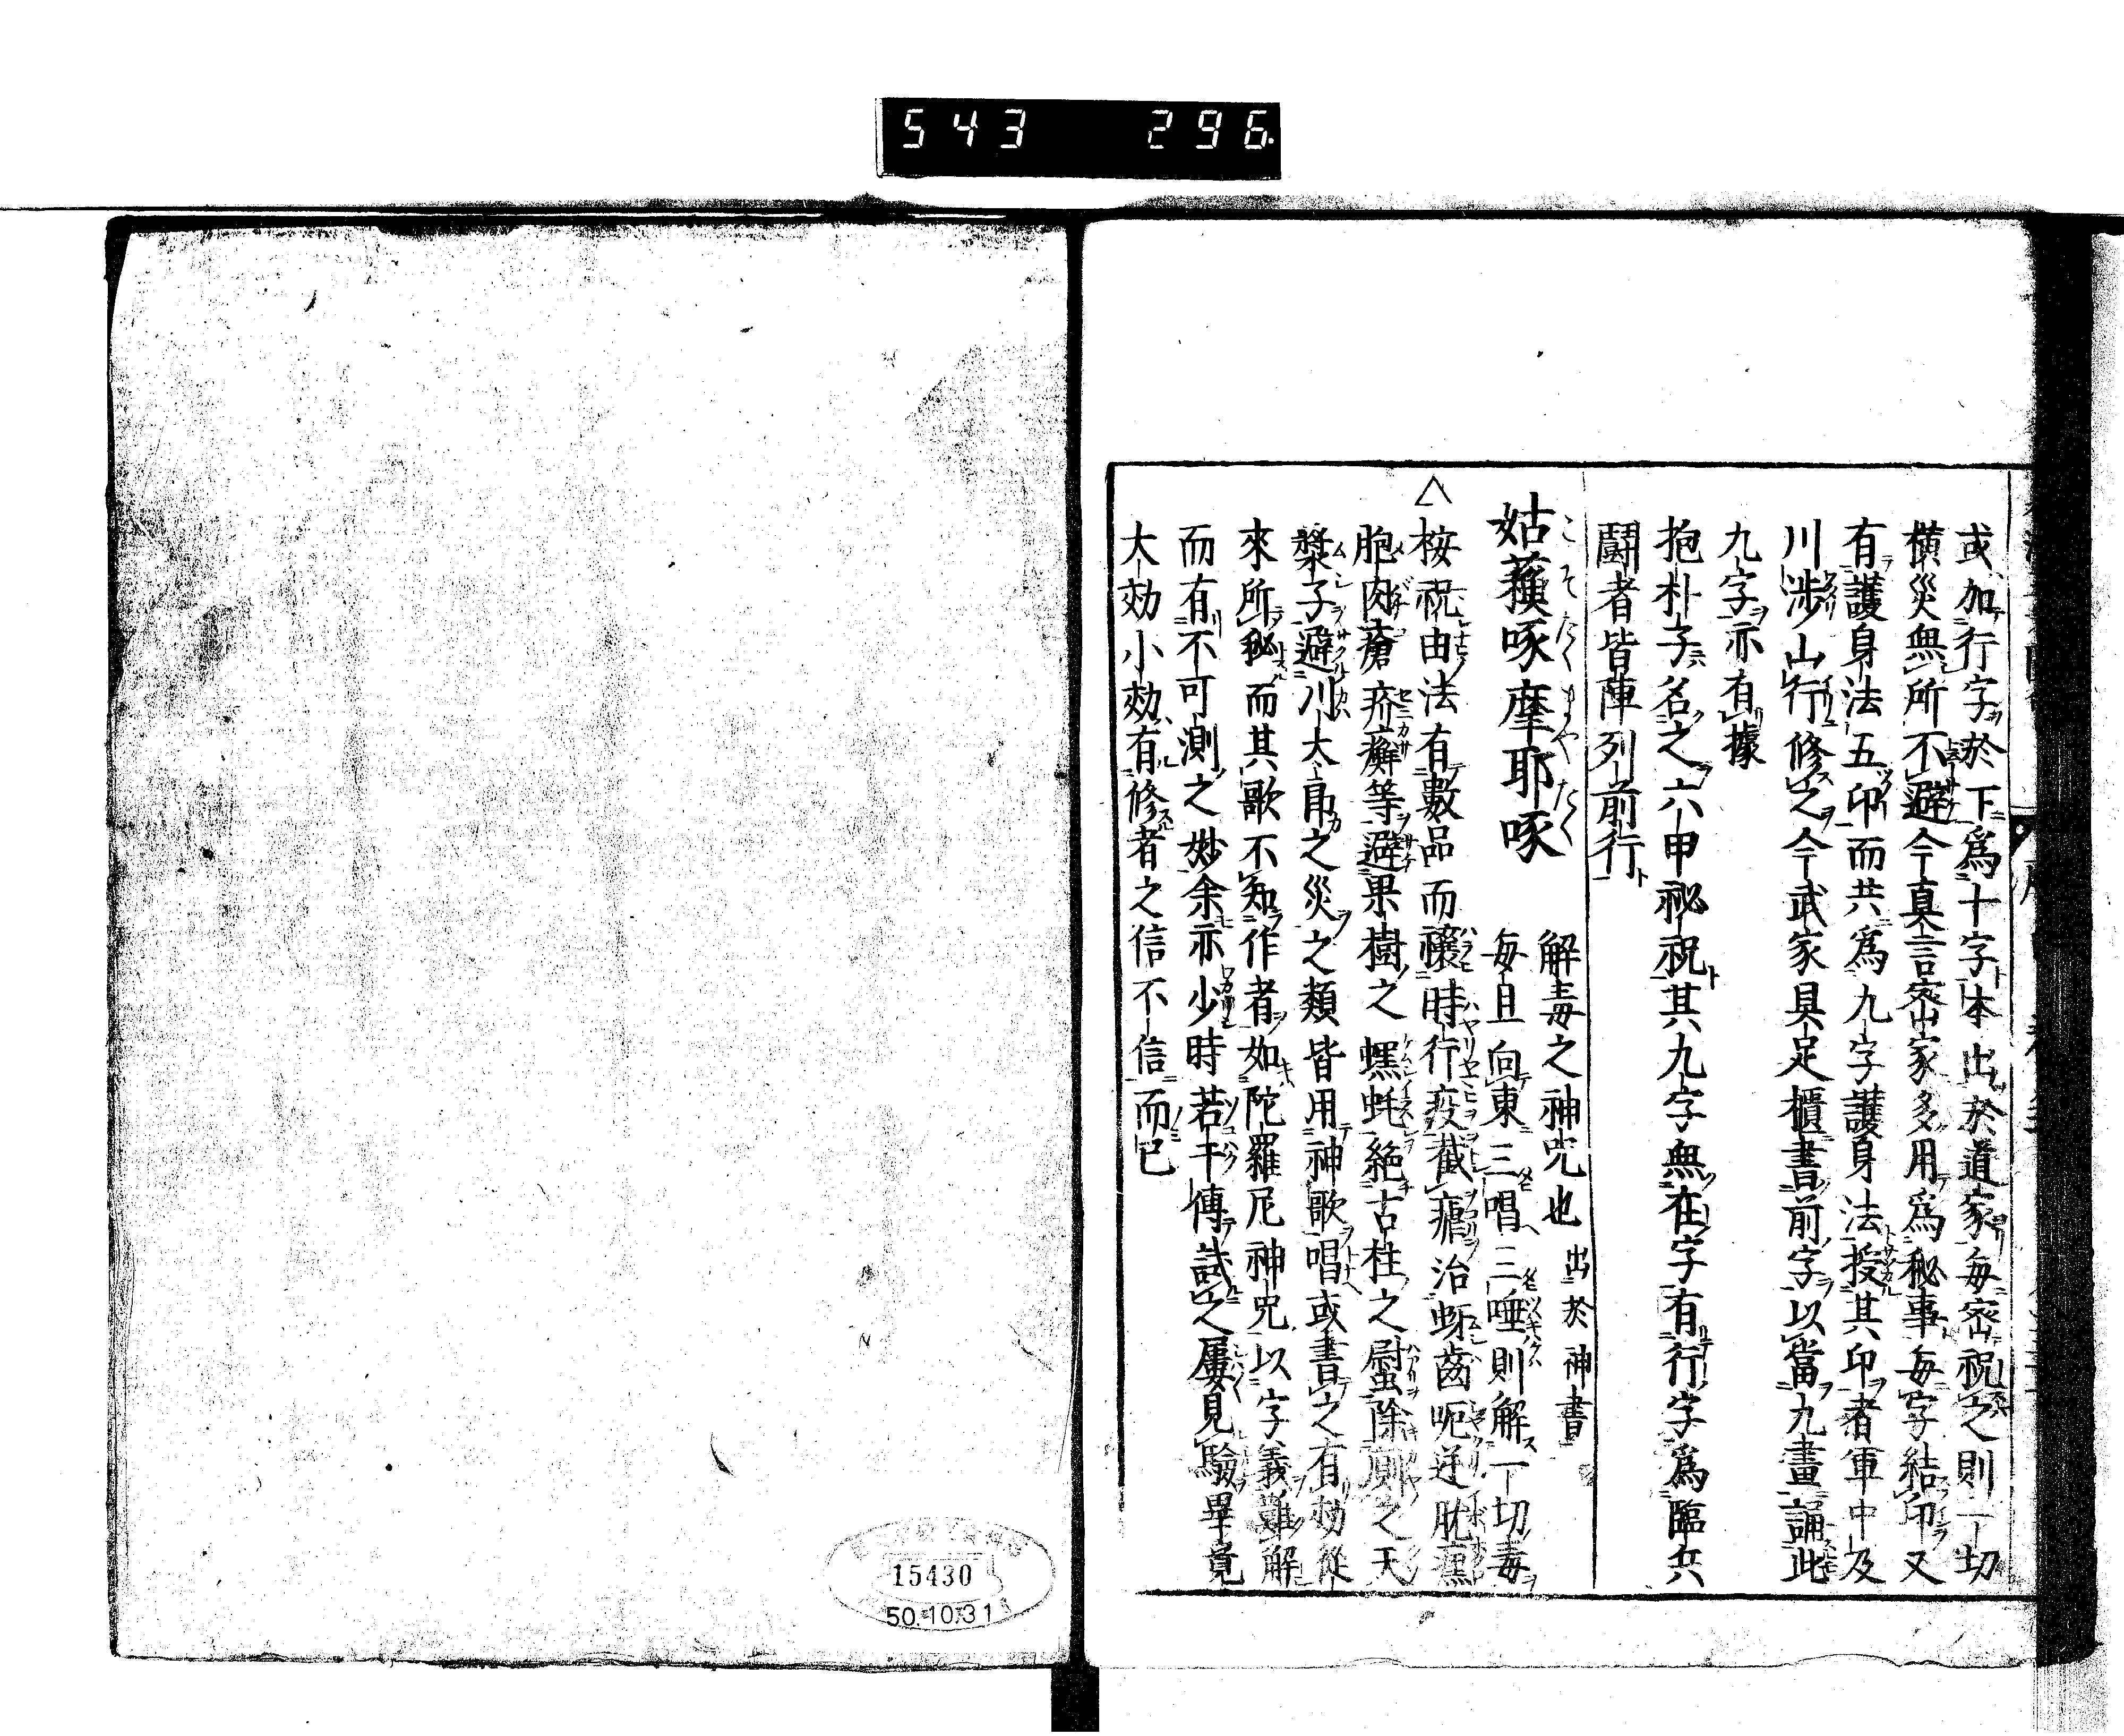 543 296
或加行字於下爲十字本出於道家每密祝之則一切
橫災無所不避今真言密家多用爲秘事每字結印又
有護身法五印而共爲九字護身法授其印者軍中及
川渉山行修之今武家具足櫃書前字以當九畫誦此
九字亦有據
抱朴子名之六甲祕祝其九字無在字有行字爲臨兵
鬪者皆陣列前行
姑蘓啄摩耶啄
こそたくまやたく
解毒之神呪也 出於神書
每旦向東三唱三唾則解一切毒
桉祝由法有數品而禳時行疫截瘧治蚜齒呃逆
胞肉瘡疥癬等避果樹之螺蚝絶古柱之蟲除厠之天
漿子避川大帛之災之類皆用神歌唱或書之有効從
來所秘而其歌不知作者如陀羅尼神咒以字義難解
而有不可測之妙余亦少時若干傳試之屢見驗畢竟
大効小効有修者之信不信而已
15430
50.10.31